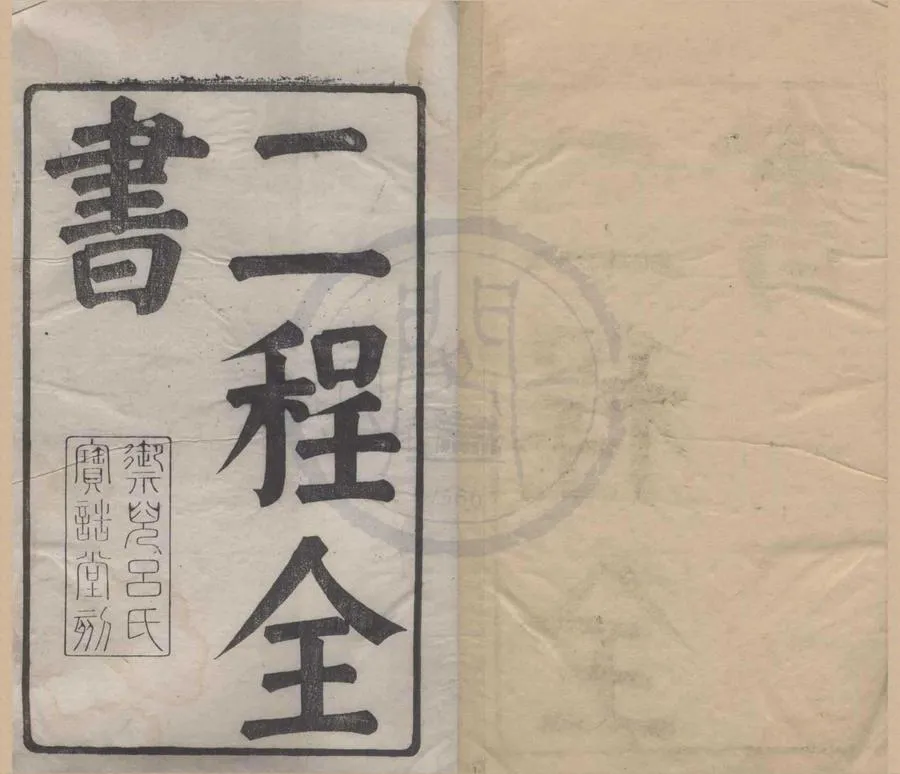 二程全
書
禦兒呂氏
寶誥堂刻